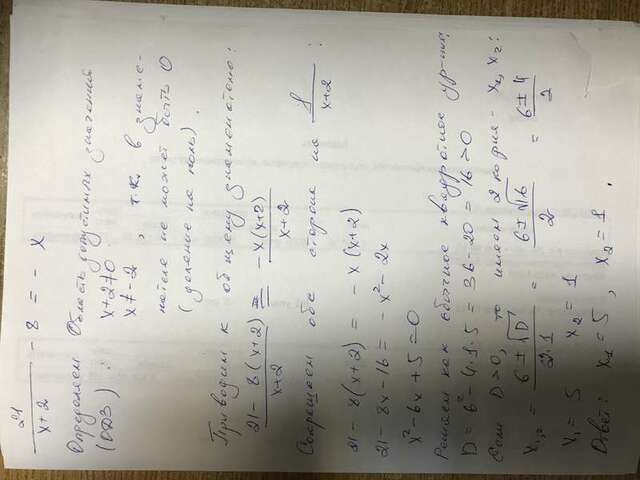 21/(x+2) - 8 = - x
Определяем Область допустимых значений
(ОДЗ) : x+2≠0
x≠-2, т.к. в знаме-
нателе не может быть 0
(деление на ноль).
Приводим к общему знаменателю:
(21-8(x+2))/(x+2) = (-x(x+2))/(x+2)
Сокращаем обе стороны на 1/(x+2) :
21-8(x+2) = -x(x+2)
21-8x-16 = -x²-2x
x²-6x+5=0
Решаем как обычное квадратное ур-ние:
D = 6²-4·1·5 = 36-20 = 16 >0
Если D>0, то имеем 2 корня - x₁, x₂:
x₁,₂ = (6±√D)/(2·1) = (6±√16)/2 = (6±4)/2
x₁ = 5 x₂ = 1
Ответ: x₁ = 5, x₂ = 1.